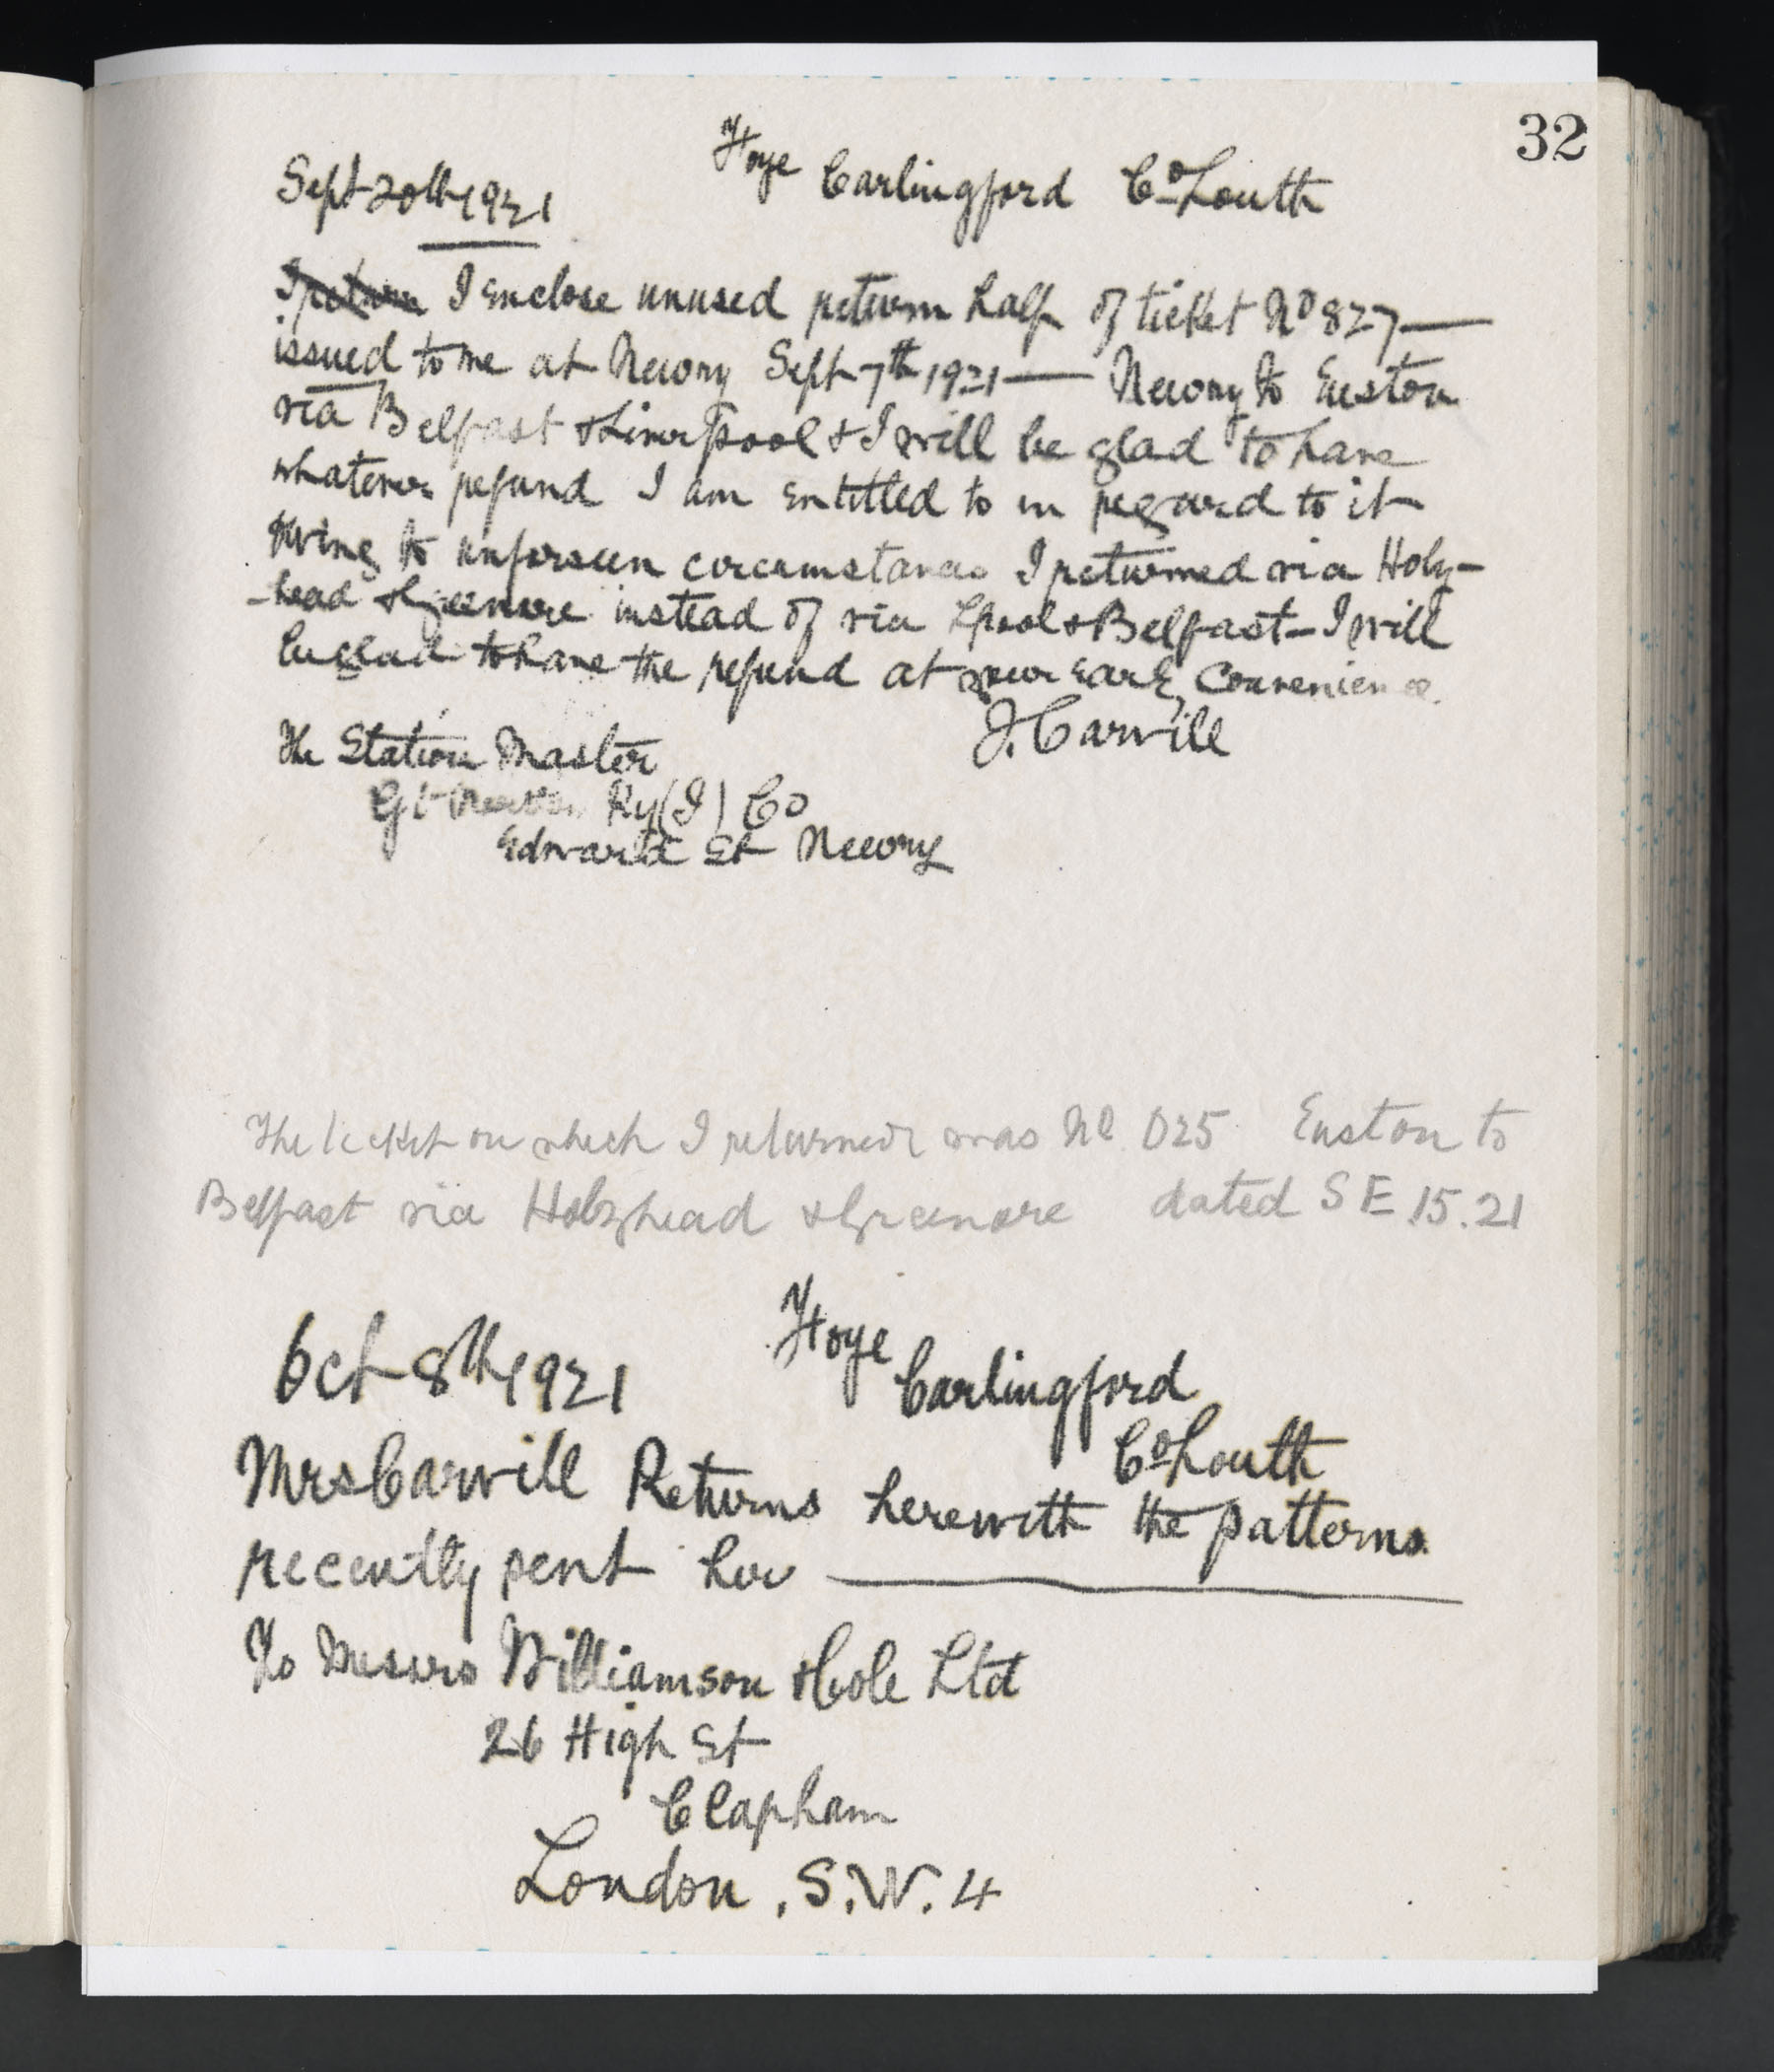 32
Sept 20th 1921 Hoye Carlingford Co Louth
I return I enclose unused return half of ticket No 827 —
issued to me at Newry Sept 7th 1921 — Newry to Euston
via Belfast & Liverpool & I will be glad to have
whatever refund I am entitled to in regard to it
Owing to unforseen circumstances I returned via Holy-
-head & Greenore instead of via Lpool & Belfast - I will
be glad to have the refund at your early convenience.
J. Carvill
The Station Master
Gt Northn Ry (I) Co
Edward St Newry
The ticket on which I returned was No. 025 Euston to
Belfast via Holyhead & Greenore dated SE.15.21
Oct 8th 1921 Hoye
Carlingford
Co Louth
Mrs Carvill Returns herewith the patterns
recently sent her —
To Messrs Williamson & Cole Ltd
26 High St
Clapham
London. S.W.4